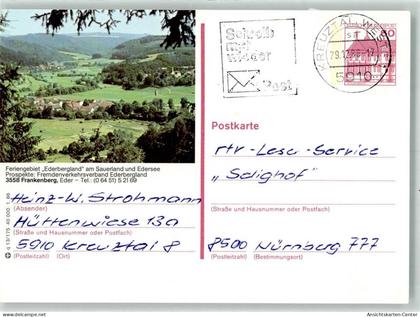 Schreib
mal
wieder
Post
KREUZTAL
5910
80
Feriengebiet „Ederbergland" am Sauerland und Edersee
Prospekte: Fremdenverkehrsverband Ederbergland
3558 Frankenberg, Eder – Tel.: (0 64 51) 5 21 69
Heinz-W. Strohmann
(Absender)
Hüttenwiese 13a
(Straße und Hausnummer oder Postfach)
5910 Kreuztal 8
(Postleitzahl) (Ort)
Postkarte
rtv-Leser-Service
„Selighof"
(Straße und Hausnummer oder Postfach)
8500 Nürnberg 777
(Postleitzahl) (Bestimmungsort)
delcampe.net
Ansichtskarten-Center